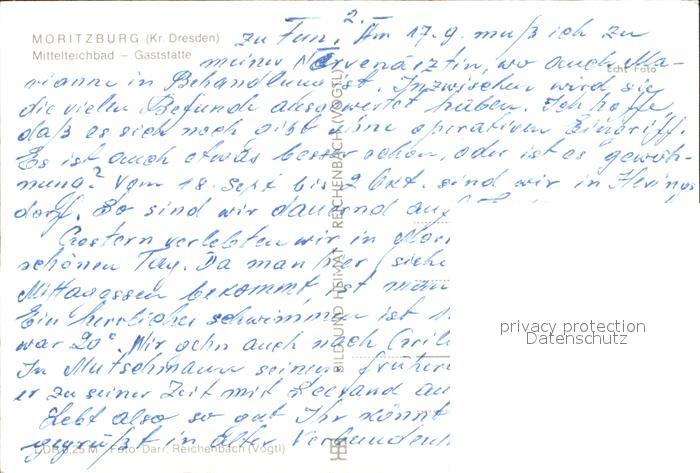 2.
MORITZBURG (Kr. Dresden)
Mittelteichbad – Gaststätte
Echt Foto
zu tun. Am 17.9. muß ich zu
meiner Nervenärztin, wo auch Ma-
rianne in Behandlung ist. Inzwischen wird sie
die vielen Befunde ausgewertet haben. Ich hoffe
daß es sich noch gibt ohne operativen Eingriff.
Es ist auch etwas besser schon, oder ist es gewöh-
nung? Vom 18. Sept bis 2 Okt. sind wir in
dorf. So sind wir dauernd auf
Gestern verlebten wir in Mori
schönen Tag. Da man hier
Mittagessen bekommt, ist man
Ein herrliches schwimmen ist
war 20°. Wir gehn auch nach
In seinen frühere
er zu seiner Zeit mit au
Lebt also so gut Ihr könnt
gegrüßt in alter Verbundenh
BILD UND HEIMAT REICHENBACH (VOGTL)
Foto: Darr, Reichenbach (Vogtl)
privacy protection
Datenschutz